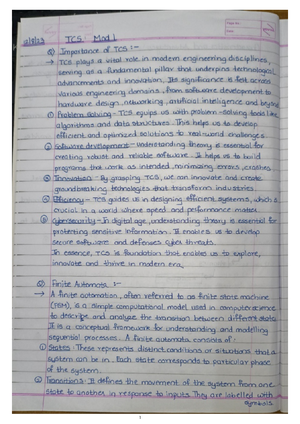 TCS Mod 1
Q) Importance of TCS :-
→ TCS plays a vital role in modern engineering disciplines,
serving as a fundamental pillar that underpins technological
advancements and innovation. Its significance is felt across
various engineering domains, from software development to
hardware design, networking, artificial intelligence and beyond
① Problem solving - TCS equips us with problem-solving tools like
algorithms and data structures. This helps us to develop
efficient and optimized solutions to real world challenges.
② Software development - Understanding theory is essential for
creating robust and reliable software. It helps us to build
programs that work as intended, minimizing errors, crashes
③ Innovation - By grasping TCS, we can innovate and create
groundbreaking technologies that transform industries.
④ Efficiency - TCS guides us in designing efficient systems, which is
crucial in a world where speed and performance matter.
⑤ Cybersecurity - In digital age, understanding theory is essential for
protecting sensitive information. It enables us to develop
secure software and defenses cyber threats.
In essence, TCS is foundation that enables us to explore,
innovate and thrive in modern era.
Q) Finite Automata :-
→ A finite automation, often referred to as finite state machine
(FSM), is a simple computational model used in computer science
to describe and analyze the transition between different states.
It is a conceptual framework for understanding and modelling
sequential processes. A finite automata consists of:
① States: These represents distinct conditions or situations that a
system can be in. Each state corresponds to particular phase
of the system.
② Transitions: It defines the movement of the system from one
state to another in response to inputs. They are labelled with
symbols.
1